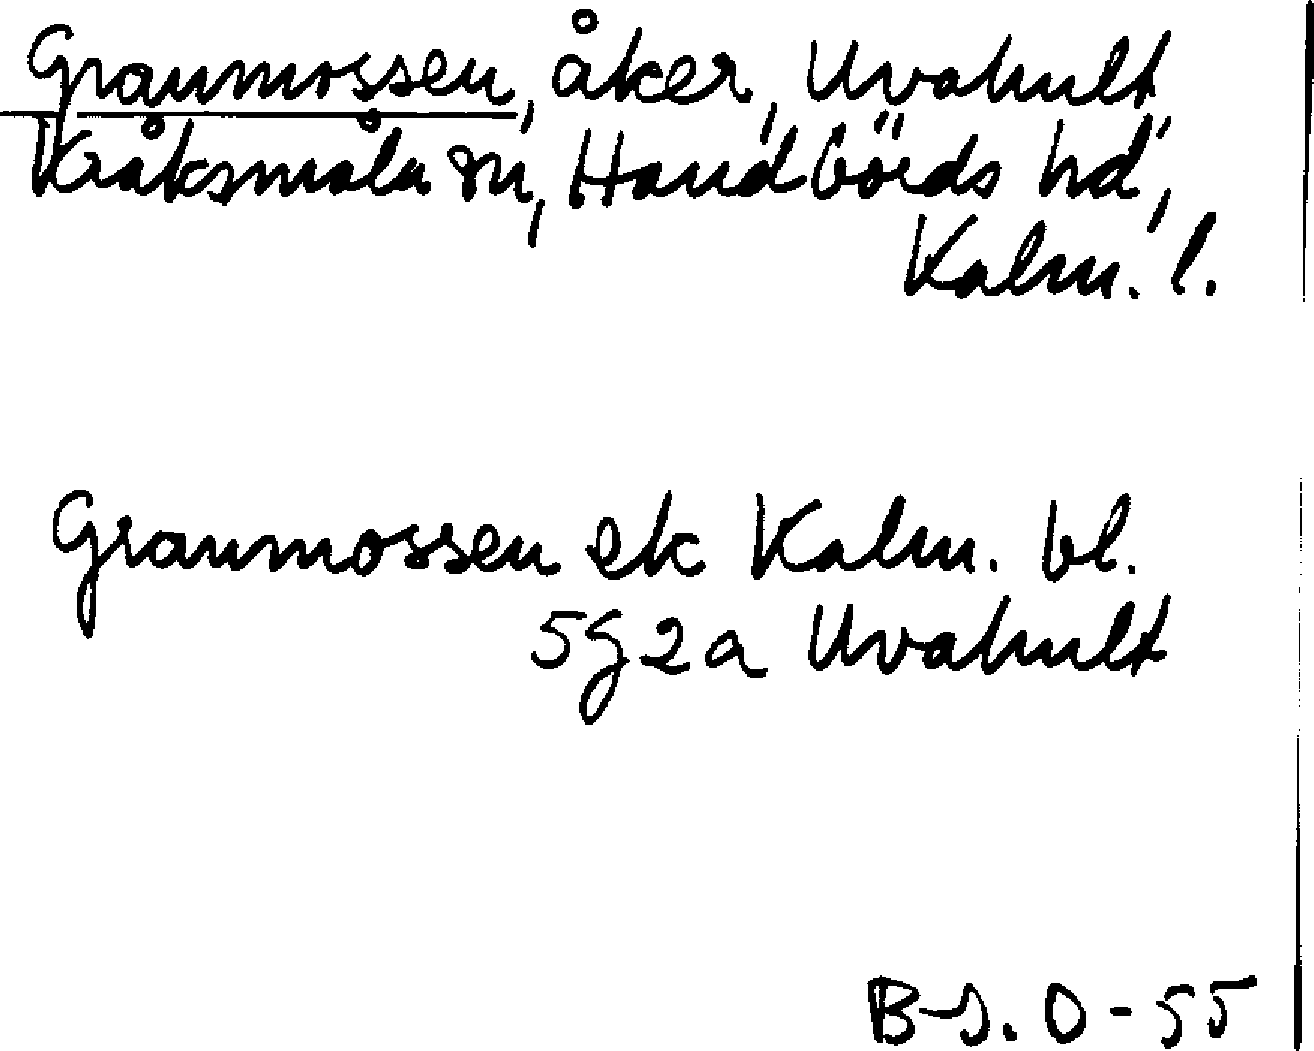 Granmossen, åker, Uvahult,
Kråksmåla sn, Handbörds hd,
Kalm. l.
Granmossen ek Kalm. bl.
5g2a Uvahult
B-J. O-55